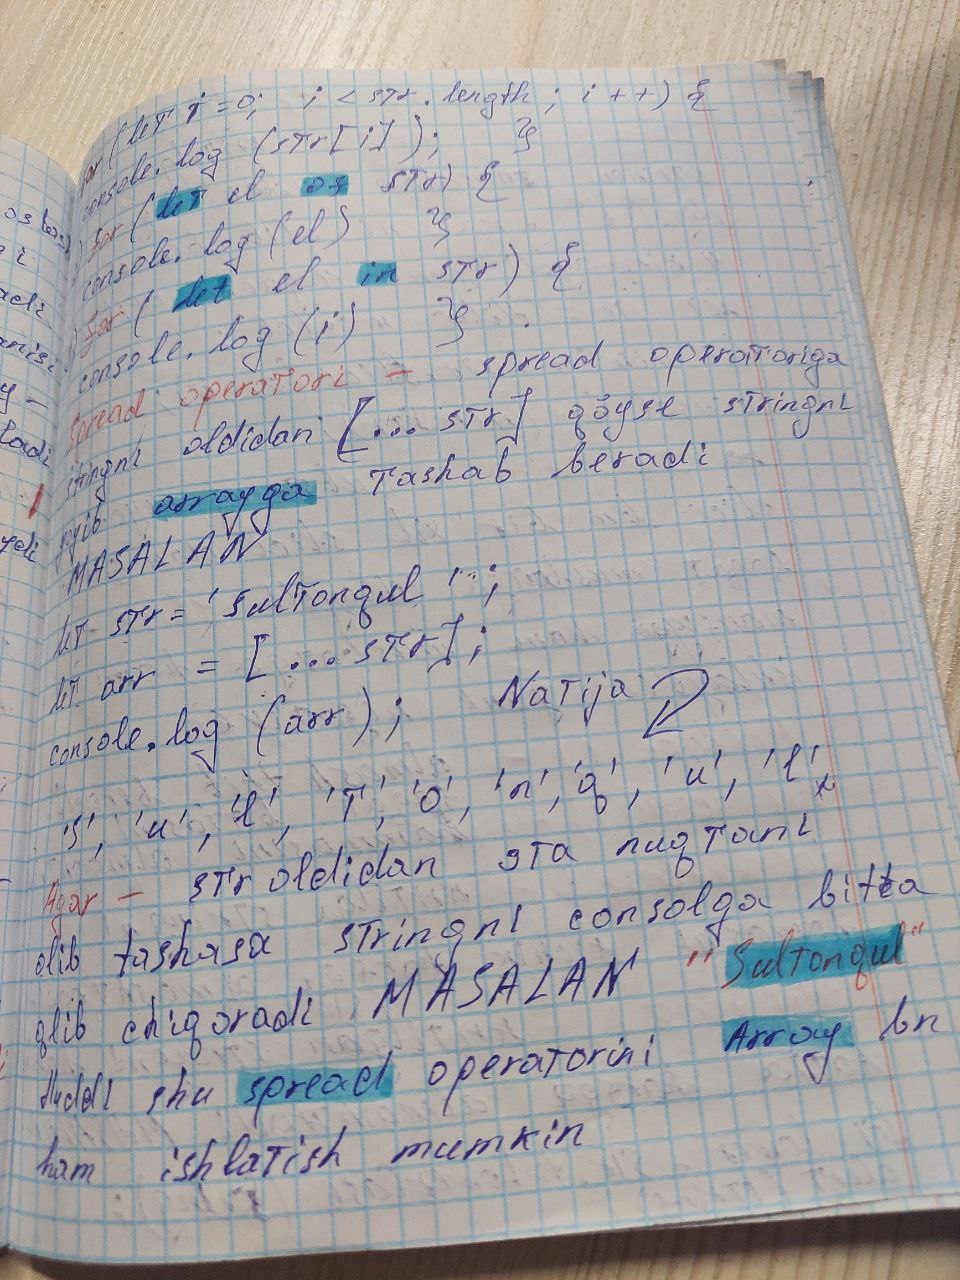 for (let i = 0; i < str.length; i++) {
console.log (str[i]); }
for (let el of str) {
console.log (el) }
for (let el in str) {
console.log (i) }
Spread operatori - spread operatoriga
stringni oldidan [... str] qo'yse stringni
yoyib arrayga tashab beradi
MASALAN
let str = 'Sultonqul';
let arr = [...str];
console.log (arr); Natija
's', 'u', 'l', 't', 'o', 'n', 'q', 'u', 'l',
Agar - str oldidan 3ta nuqtani
olib tashasa stringni consolga bitta
qlib chiqoradi MASALAN "Sultonqul"
Huddi shu spread operatorini Array bn
ham ishlatish mumkin